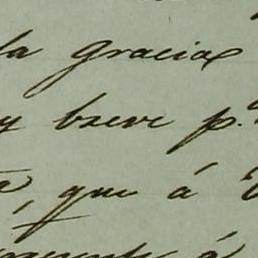 la gracia
y breve p.
que á
á